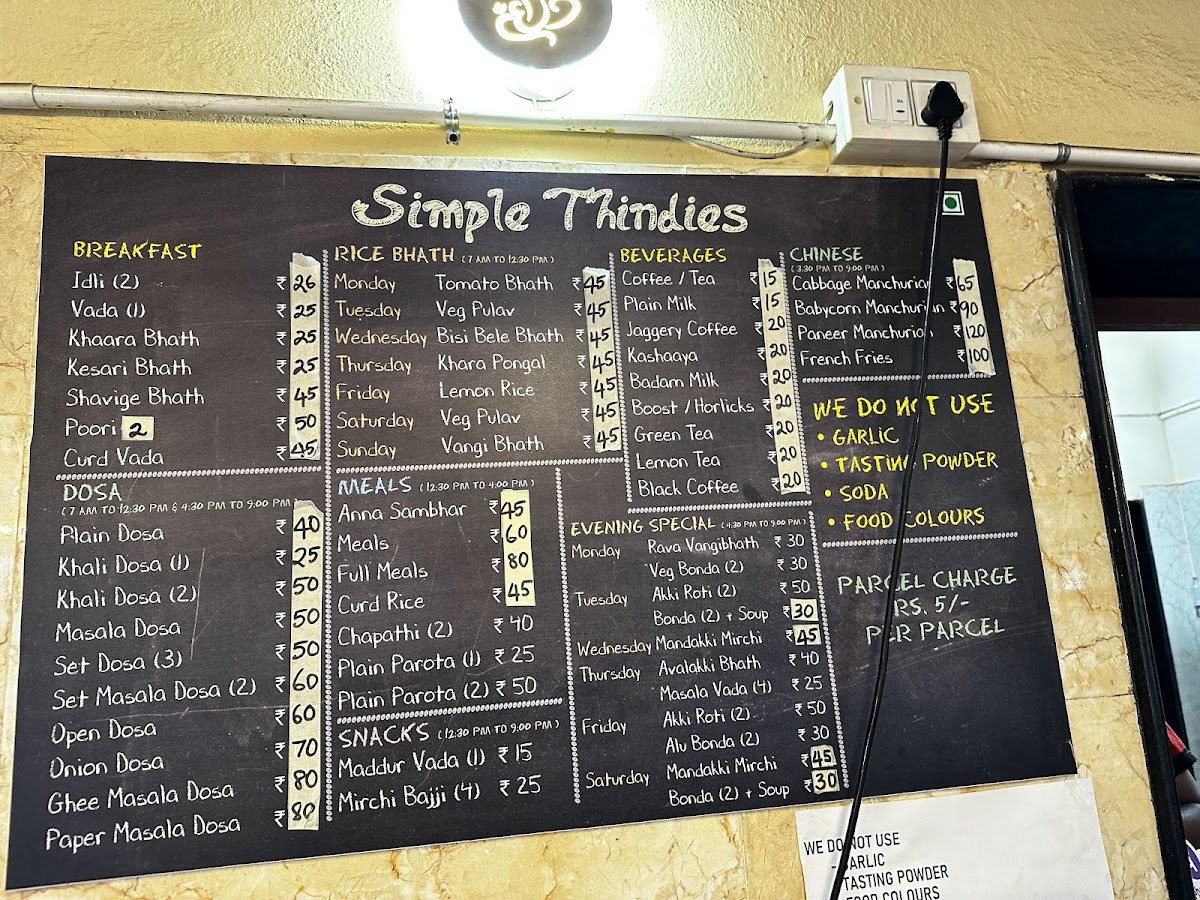 Simple Thindies
BREAKFAST
Idli (2) ₹ 26
Vada (1) ₹ 25
Khaara Bhath ₹ 25
Kesari Bhath ₹ 25
Shavige Bhath ₹ 45
Poori 2 ₹ 50
Curd Vada ₹ 45
DOSA
(7 AM TO 12.30 PM & 4:30 PM TO 9:00 PM)
Plain Dosa ₹ 40
Khali Dosa (1) ₹ 25
Khali Dosa (2) ₹ 50
Masala Dosa ₹ 50
Set Dosa (3) ₹ 50
Set Masala Dosa (2) ₹ 60
Open Dosa ₹ 60
Onion Dosa ₹ 70
Ghee Masala Dosa ₹ 80
Paper Masala Dosa ₹ 80
RICE BHATH (7 AM TO 12:30 PM)
Monday Tomato Bhath ₹ 45
Tuesday Veg Pulav ₹ 45
Wednesday Bisi Bele Bhath ₹ 45
Thursday Khara Pongal ₹ 45
Friday Lemon Rice ₹ 45
Saturday Veg Pulav ₹ 45
Sunday Vangi Bhath ₹ 45
MEALS (12:30 PM TO 4:00 PM)
Anna Sambhar ₹ 45
Meals ₹ 60
Full Meals ₹ 80
Curd Rice ₹ 45
Chapathi (2) ₹ 40
Plain Parota (1) ₹ 25
Plain Parota (2) ₹ 50
SNACKS (12:30 PM TO 9:00 PM)
Maddur Vada (1) ₹ 15
Mirchi Bajji (4) ₹ 25
BEVERAGES
Coffee / Tea ₹ 15
Plain Milk ₹ 15
Jaggery Coffee ₹ 20
Kashaaya ₹ 20
Badam Milk ₹ 20
Boost / Horlicks ₹ 20
Green Tea ₹ 20
Lemon Tea ₹ 20
Black Coffee ₹ 20
EVENING SPECIAL (4:30 PM TO 9:00 PM)
Monday Rava Vangibhath ₹ 30
Veg Bonda (2) ₹ 30
Tuesday Akki Roti (2) ₹ 50
Bonda (2) + Soup ₹ 30
Wednesday Mandakki Mirchi ₹ 45
Thursday Avalakki Bhath ₹ 40
Masala Vada (4) ₹ 25
Friday Akki Roti (2) ₹ 50
Alu Bonda (2) ₹ 30
Saturday Mandakki Mirchi ₹ 45
Bonda (2) + Soup ₹ 30
CHINESE
(3:30 PM TO 9:00 PM)
Cabbage Manchurian ₹ 65
Babycorn Manchurian ₹ 90
Paneer Manchurian ₹ 120
French Fries ₹ 100
WE DO NOT USE
• GARLIC
• TASTING POWDER
• SODA
• FOOD COLOURS
PARCEL CHARGE
RS. 5/-
PER PARCEL
WE DO NOT USE
- GARLIC
TASTING POWDER
FOOD COLOURS